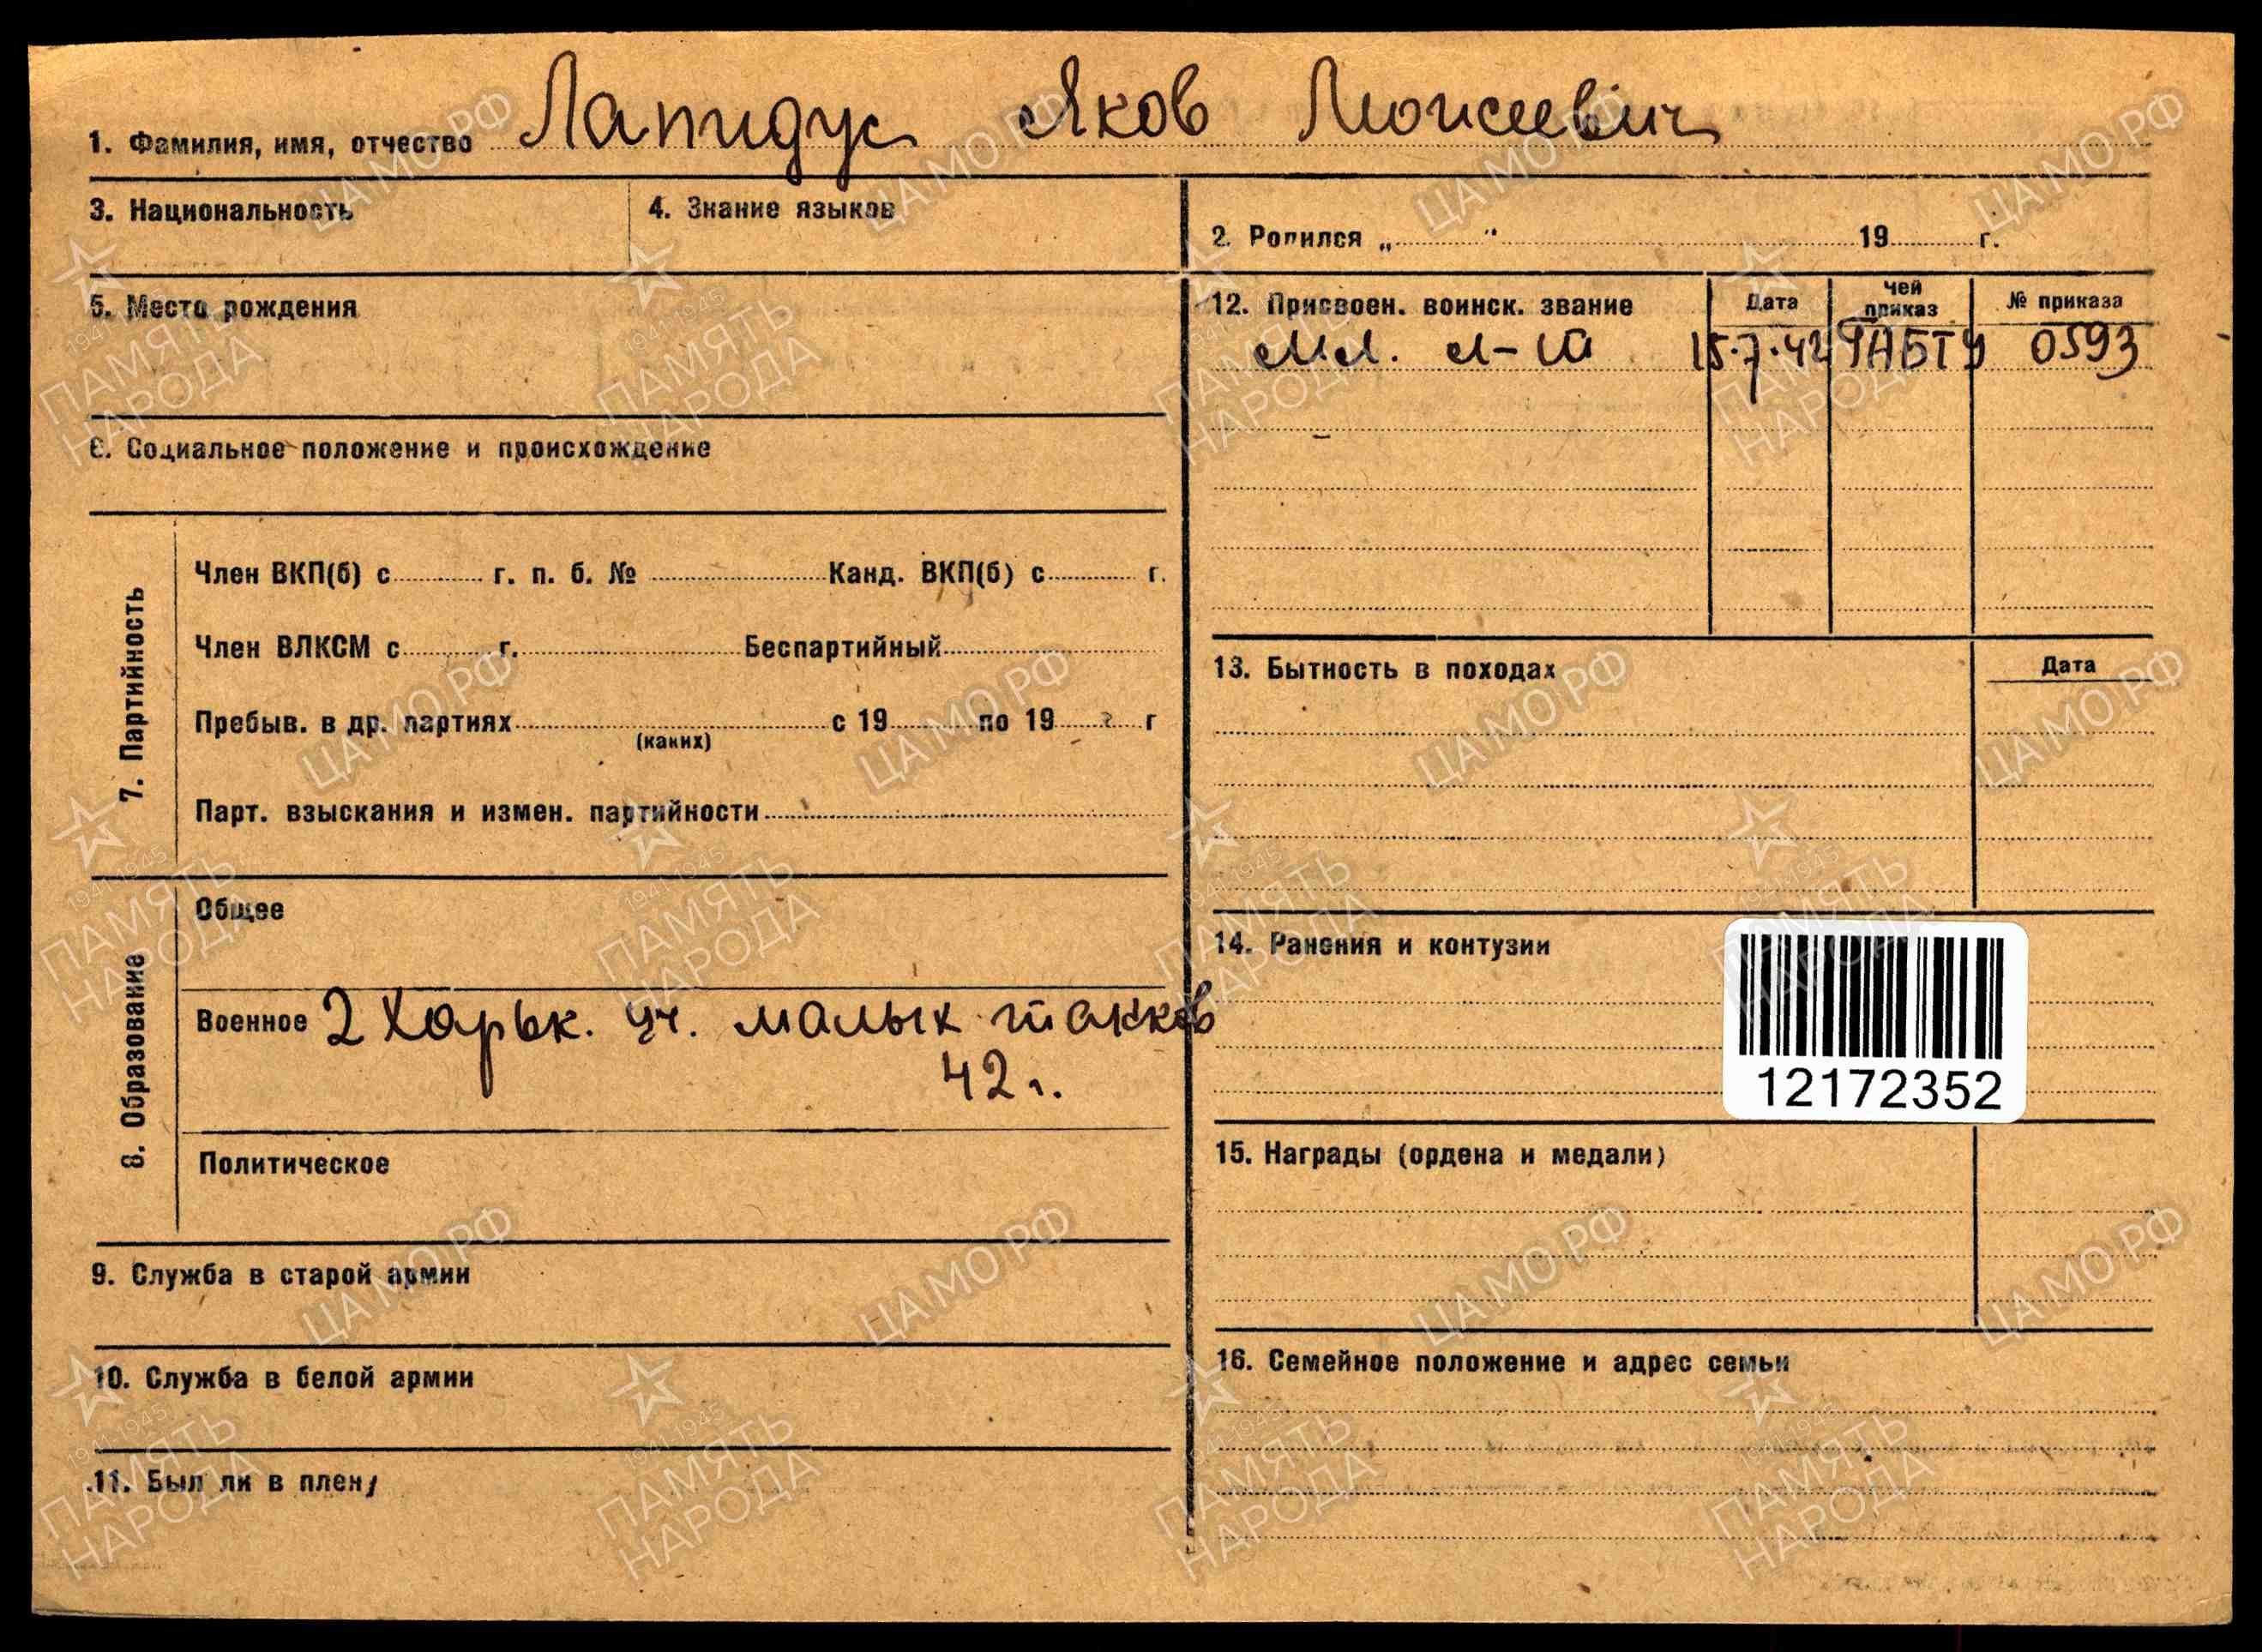 1. Фамилия, имя, отчество Лапидус Яков Моисеевич
3. Национальность
4. Знание языков
2. Родился „ " 19 г.
5. Место рождения
6. Социальное положение и происхождение
7. Партийность
Член ВКП(б) с г. п. б. № Канд. ВКП(б) с г.
Член ВЛКСМ с г. Беспартийный
Пребыв. в др. партиях с 19 по 19 г
(каких)
Парт. взыскания и измен. партийности
8. Образование
Общее
Военное 2 Харьк. уч. малых танков
42 г.
Политическое
9. Служба в старой армии
10. Служба в белой армии
11. Был ли в плену
12. Присвоен. воинск. звание Дата Чей приказ № приказа
мл. л-т 15.7.42 ГАБТУ 0593
13. Бытность в походах Дата
14. Ранения и контузии
12172352
15. Награды (ордена и медали)
16. Семейное положение и адрес семьи
ЦАМО.РФ
1941-1945
ПАМЯТЬ
НАРОДА